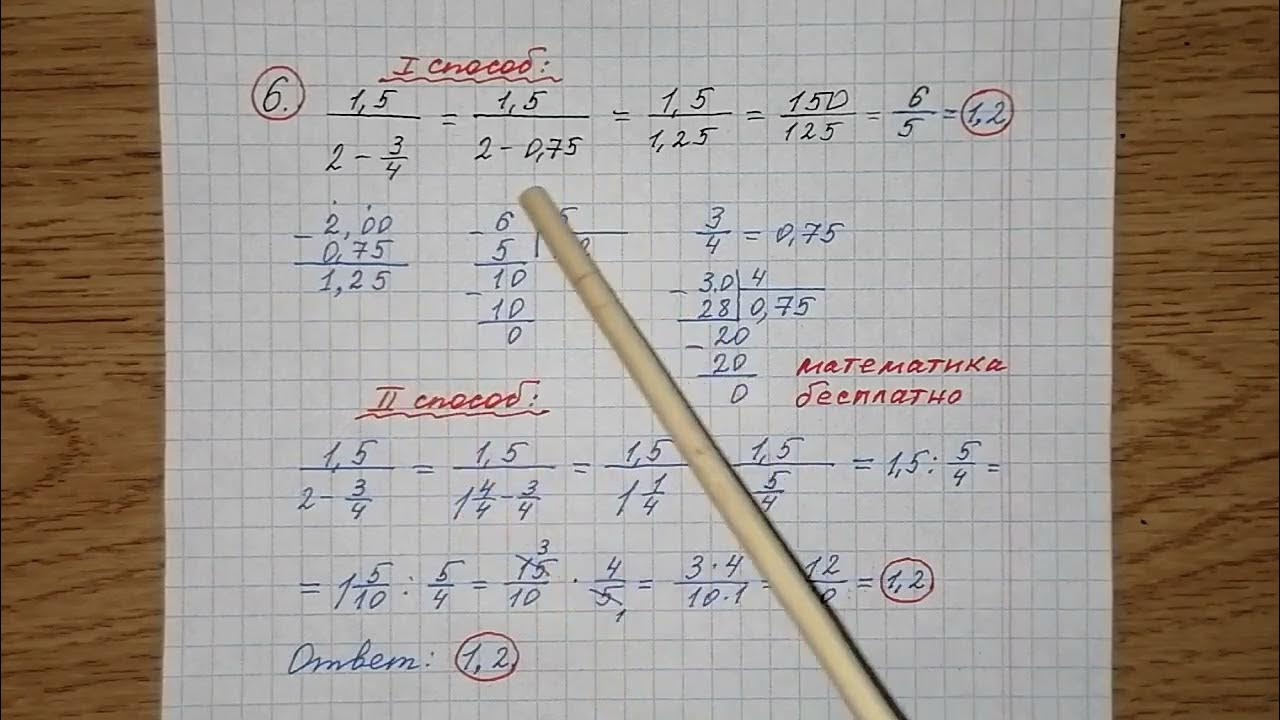 I способ:
6. 1,5 / (2 - 3/4) = 1,5 / (2 - 0,75) = 1,5 / 1,25 = 150 / 125 = 6 / 5 = 1,2
- 2,00 - 6 | 5 3/4 = 0,75
0,75 5 | 2
1,25 - 10 - 3.0 | 4
10 28 | 0,75
0 - 20
20 математика
0 бесплатно
II способ:
1,5 / (2 - 3/4) = 1,5 / (1 4/4 - 3/4) = 1,5 / (1 1/4) 1,5 / (5/4) = 1,5 : 5/4 =
= 1 5/10 : 5/4 = 15/10 3 · 4/5 1 = 3·4 / 10·1 = 12 / 0 = 1,2
Ответ: 1,2